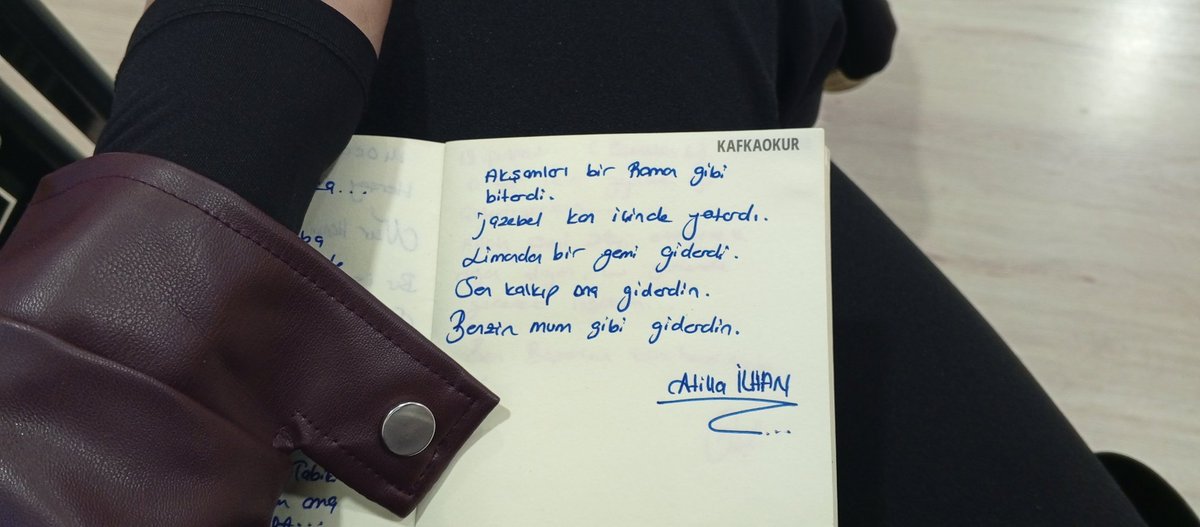 KAFKAOKUR
Akşamları bir Roma gibi
biterdi.
jazebel kan içinde yatardı.
Limanda bir gemi giderdi.
Sen kalkıp ona giderdin.
Benzin mum gibi giderdin.
Atilla İLHAN
...